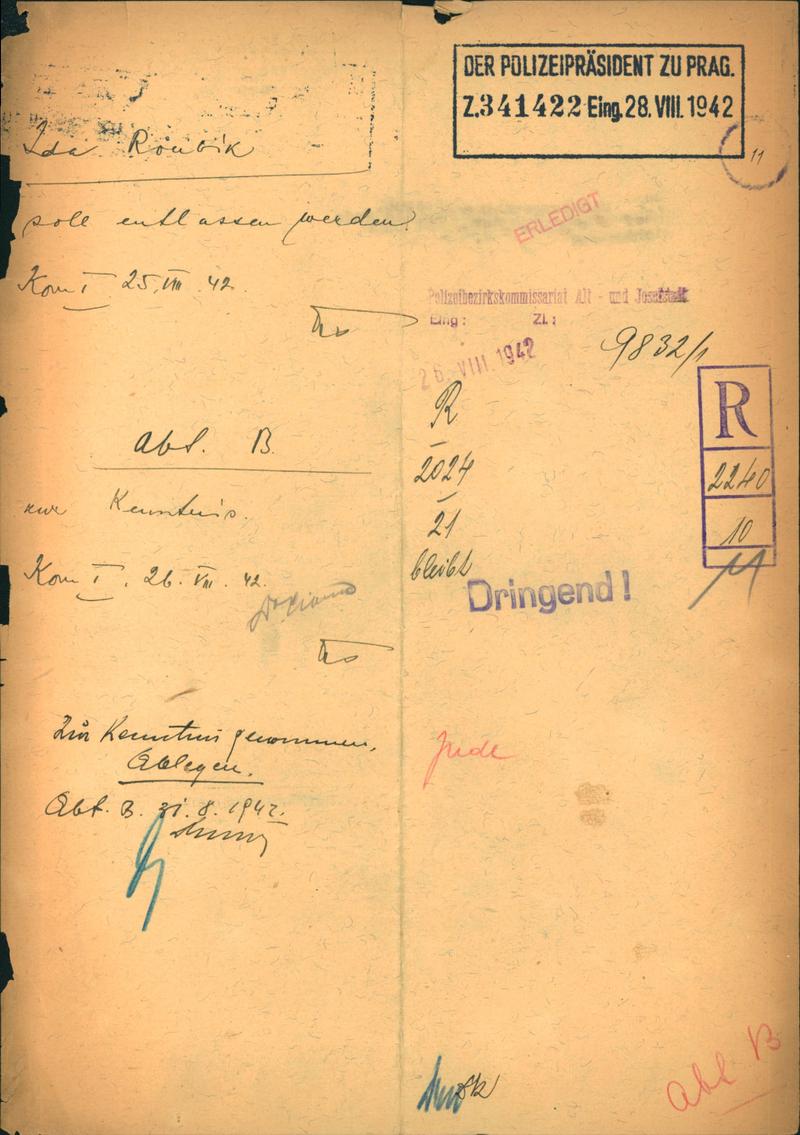 DER POLIZEIPRÄSIDENT ZU PRAG.
Z.341422 Eing. 28. VIII. 1942
11
Ida Roubik
soll entlassen werden.
Kom I 25. VIII. 42.
ERLEDIGT
Polizeibezirkskommissariat Alt - und Josefstadt
Eing: Zl:
26. VIII. 1942
9832/1
R
2024
21
bleibt
R
2240
10
Dringend!
Abt. B.
zur Kenntnis.
Kom I. 26. VIII. 42.
Zur Kenntnis genommen.
Ablegen.
Abt. B. 31. 8. 1942.
Jude
Abt B